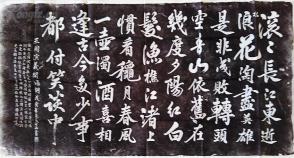 滚滚長江東逝
浪花淘盡英雄
是非成敗轉頭
空青山依舊在
幾度夕陽紅白
髮漁樵江渚上
慣看穐月春風
一壺濁酒喜相
逢古今多少事
都付笑談中